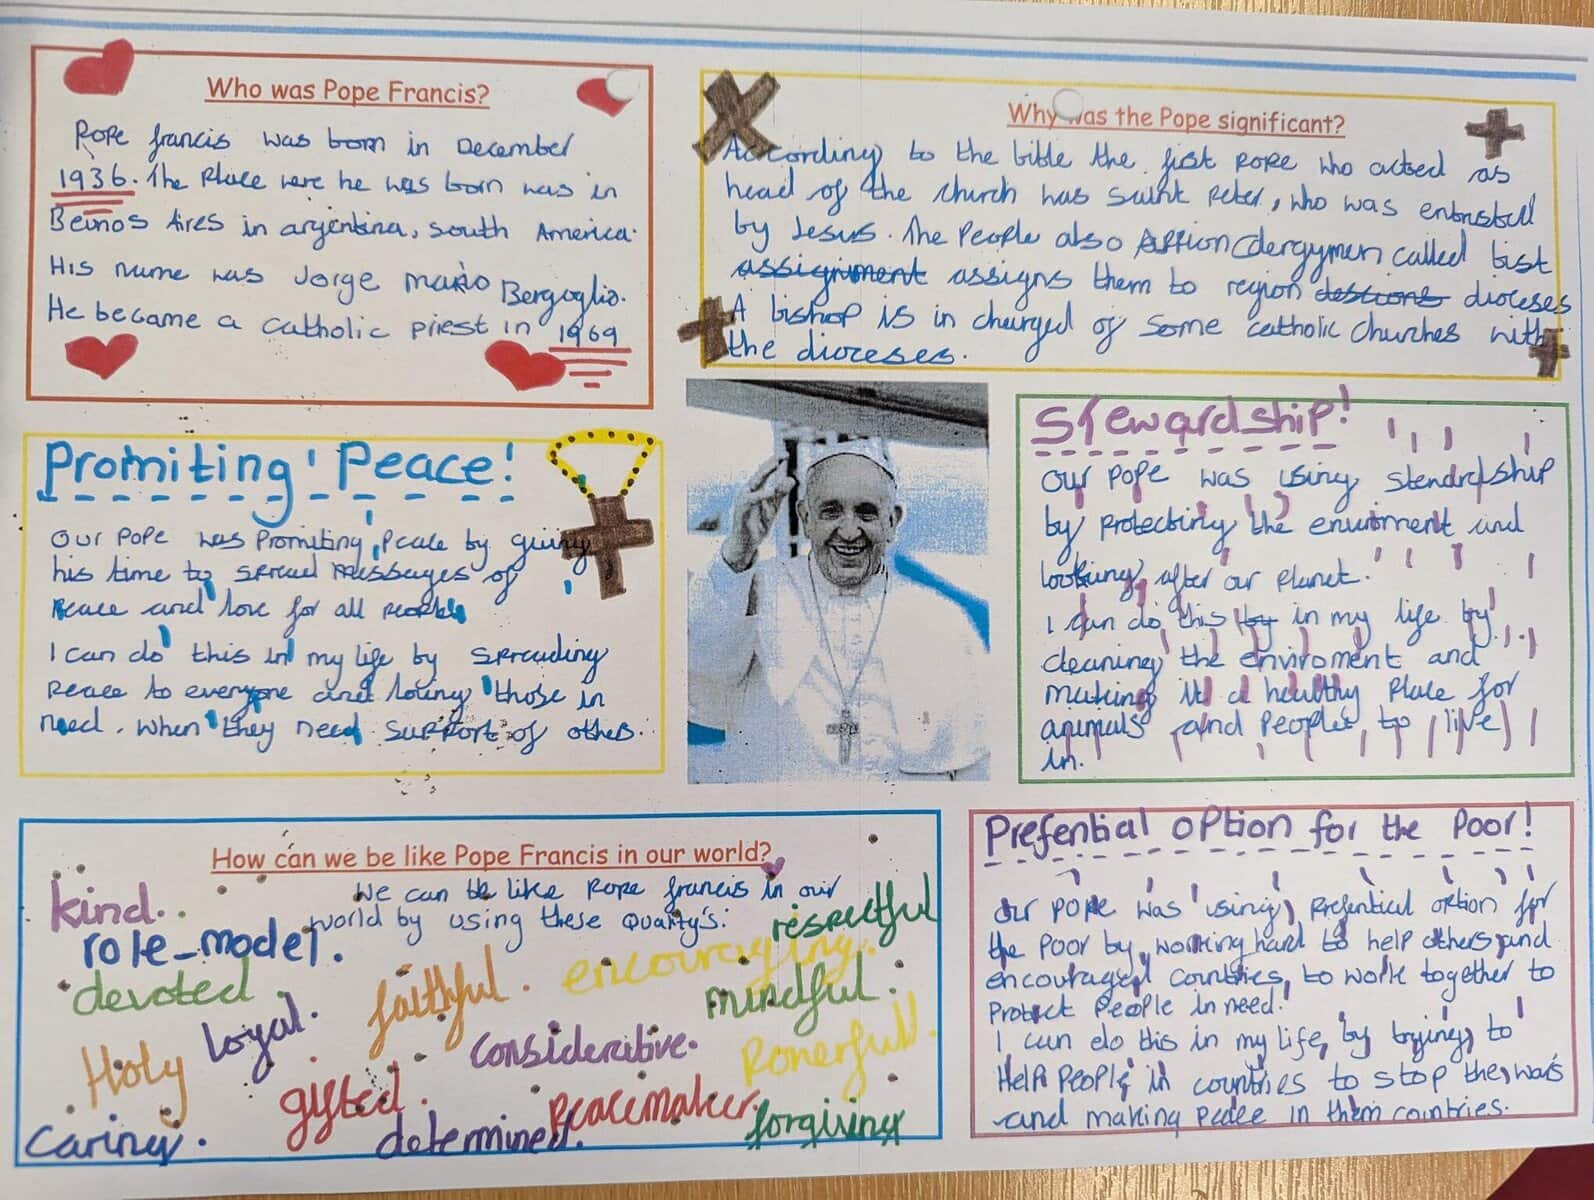 Who was Pope Francis?
Pope francis was born in December
1936. The Place were he was born was in
Beinos Aires in argentina, south America.
His name was Jorge mario Bergoglio.
He became a catholic priest in 1969
Why was the Pope significant?
According to the bible the first pope who acted as
head of the church was saint Peter, who was entrusted
by Jesus. The People also clergymen called
assignment assigns them to region dioceses
A bishop is in charged of some catholic churches with
the dioceses.
Promiting Peace!
Our pope was promiting peace by giving
his time to spread messages of
peace and love for all people
I can do this in my life by spreading
peace to everyone and loving those in
need. when they need support of others.
Stewardship!
Our pope was using stendrdship
by protecting the enviroment and
looking after our planet.
I can do this by in my life by
cleaning the enviroment and
making it a healthy place for
animals and people to live
in.
How can we be like Pope Francis in our world?
We can be like Pope francis in our
world by using these quality's:
kind.
respectful
role-model.
devoted
faithful.
encouraging.
mindful.
Loyal.
Holy
considerative.
Powerful.
gifted.
peacemaker.
caring.
determined.
forgiving
Prefential option for the Poor!
Our pope was using prefential option for
the poor by working hard to help others and
encouraged countries, to work together to
protect people in need!
I can do this in my life, by trying to
Help people in countries to stop the wars
and making peace in them countries.